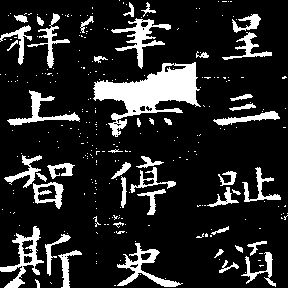 呈三趾頌
筆停史
祥上智斯